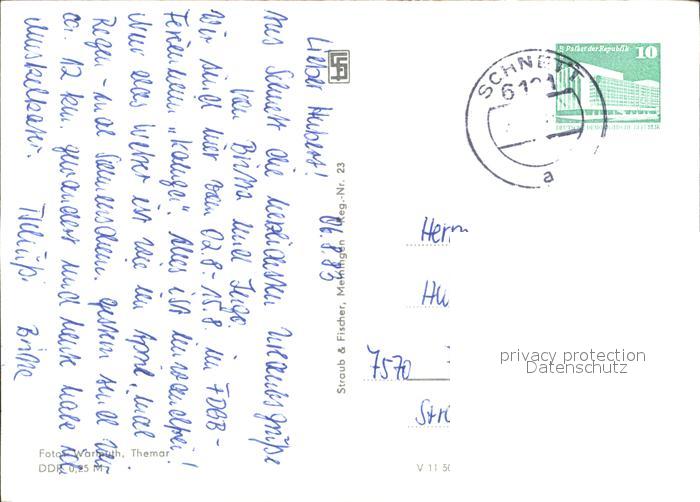 Lieber Hubert! 06.8.83
Aus Schnett die herzlichsten Urlaubsgrüße
von Birthe und Ingo.
Wir sind hier vom 02.8.-15.8. im FDGB-
Ferienheim „Kaluga". Alles ist einwandfrei!
Nur das Wetter ist wie im April, mal
Regen - mal Sonnenschein. Gestern sind wir
ca. 12 km. gewandert und heute habe ich
Muskelkater.
Tschüß! Birthe
Foto: Warmuth, Themar
DDR 0,25 M
Straub & Fischer, Meiningen Reg.-Nr. 23
V 11 50
Palast der Republik 10
DEUTSCHE DEMOKRATISCHE REPUBLIK
SCHNETT
a
Herrn
Hu
7570
Str
privacy protection
Datenschutz